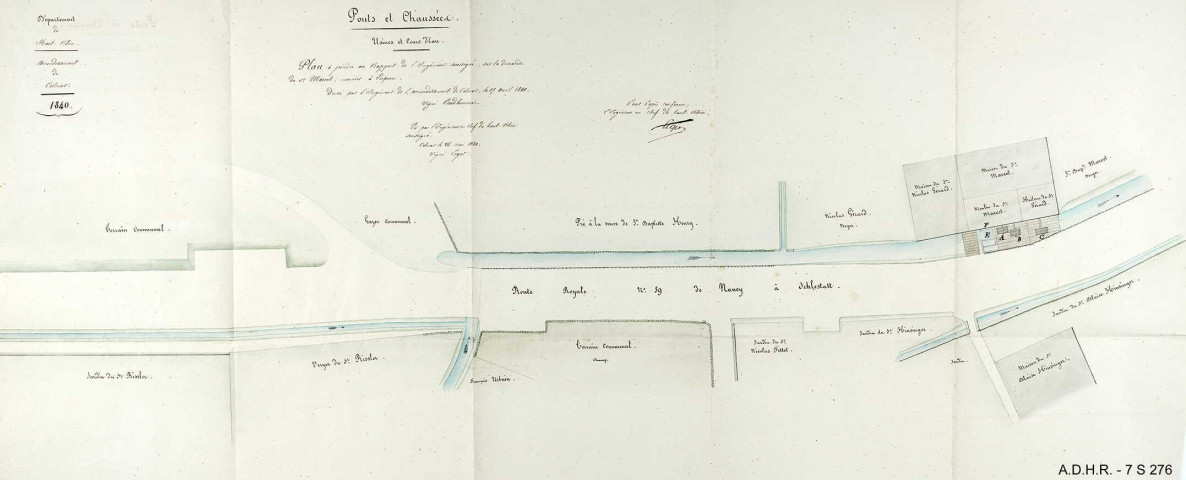 Département
du
Haut-Rhin.
Arrondissement
de
Colmar.
1840.
Ponts et Chaussées.
Usines et Cours d'Eau.
Plan à joindre au Rapport de l'Ingénieur soussigné, sur la demande
du Sr. Marcol, meunier à
Dressé par l'Ingénieur de l'arrondissement de Colmar, le 17 avril 1840.
Signé
Vu par l'Ingénieur en chef du haut-Rhin
soussigné.
Colmar le 26 mai 1840.
Signé
Pour Copie conforme;
l'Ingénieur en chef du haut-Rhin,
Terrain Communal.
communal.
Pré à la veuve de St. Baptiste Henry.
Nicolas Gérard.
Verger.
Maison du Sr.
Nicolas Gérard.
Maison du Sr.
Marcol.
Moulin du Sr.
Marcol.
Sr.
Gérard.
St. Bapt. Marcol
Verger.
F
E
A
B
C
Route Royale N° 59 de Nancy à Schlestatt.
Jardin du Sr. Rissler.
Verger du Sr. Rissler.
François Urbain.
Terrain Communal.
Jardin du Sr.
Nicolas
Jardin du Sr. Hinsinger.
Jardin du Sr. Blaise Hinsinger.
Jardin.
Maison du Sr.
Blaise Hinsinger.
A.D.H.R. - 7 S 276